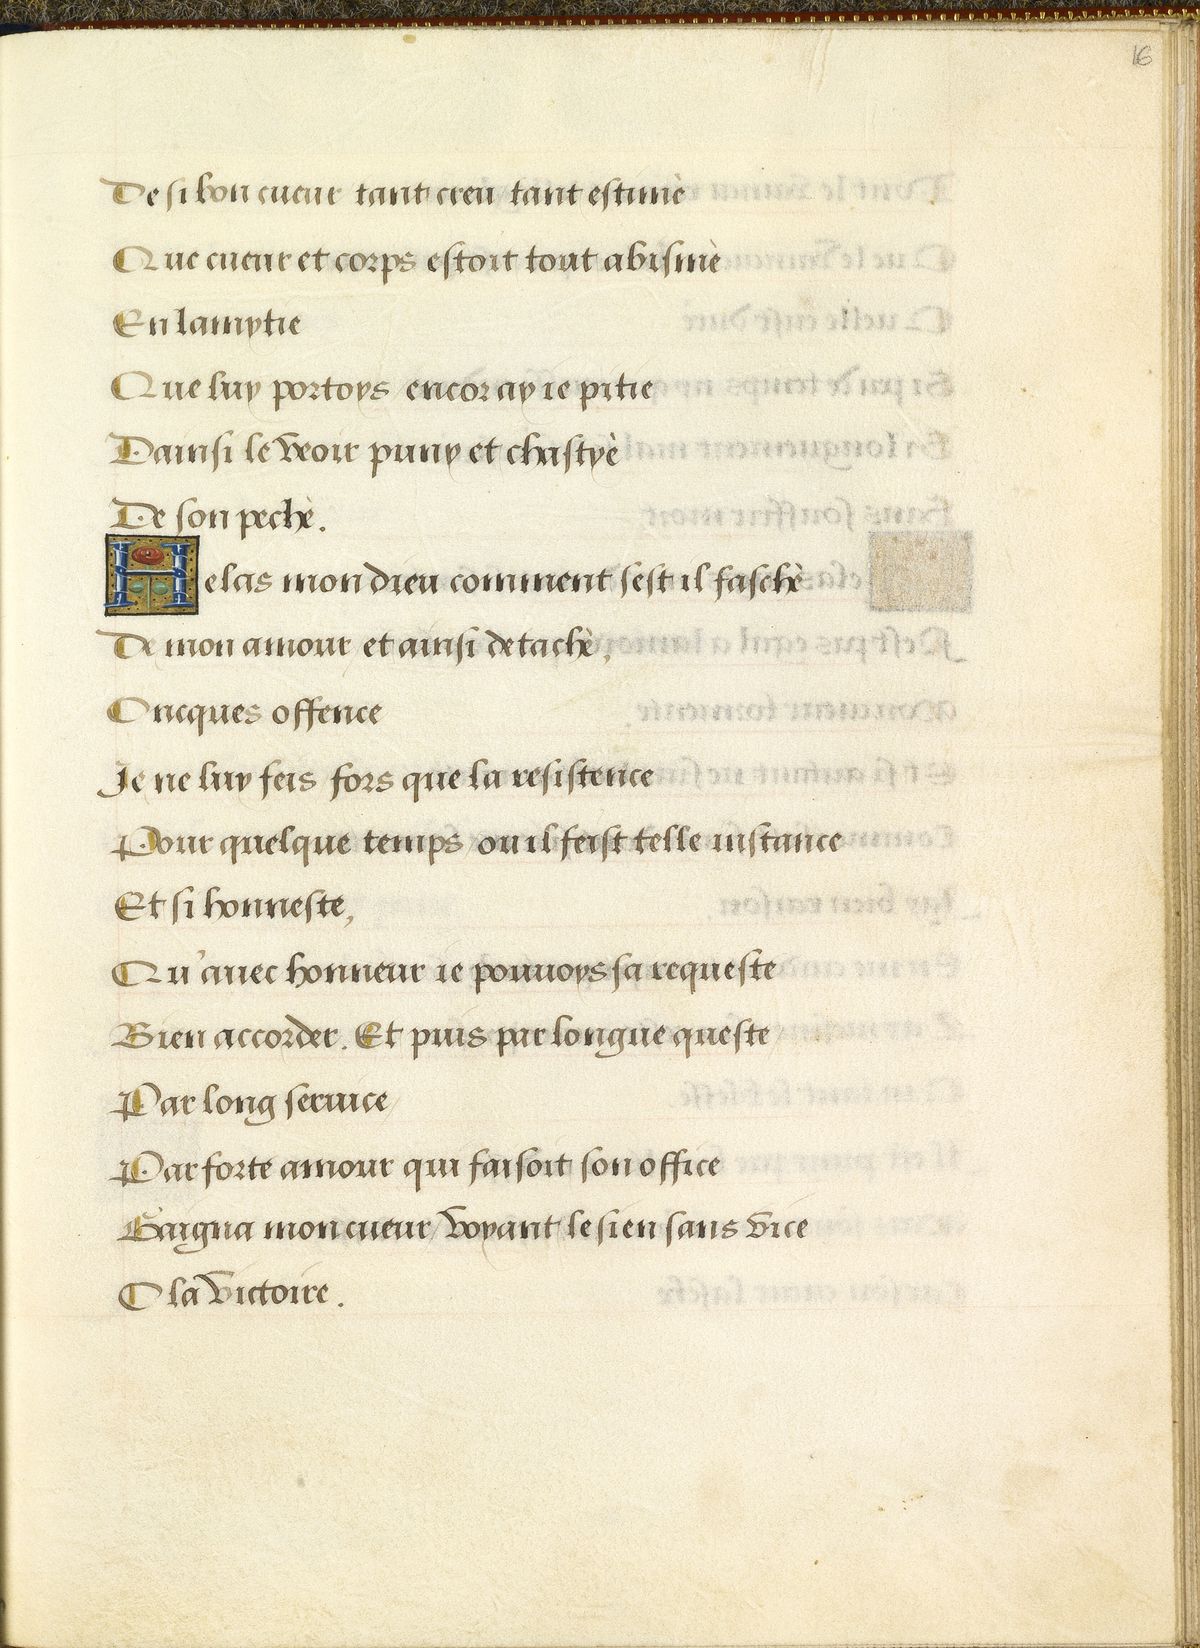 16
De si bon cueur tant creu tant estimè
Que cueur et corps estoit tout abismè
En lamytie
Que luy portoys encor ay ie pitie
Dainsi le veoir puny et chastyè
De son pechè.
Helas mon dieu comment sest il faschè
De mon amour et ainsi detachè,
Oncques offence
Je ne luy feis fors que la resistence
Pour quelque temps ou il feist telle instance
Et si honneste,
Qu'auec honneur ie pouuoys sa requeste
Bien accorder. Et puis par longue queste
Par long seruice
Par forte amour qui faisoit son office
Gaigna mon cueur/ voyant le sien sans vice
O la victoire.